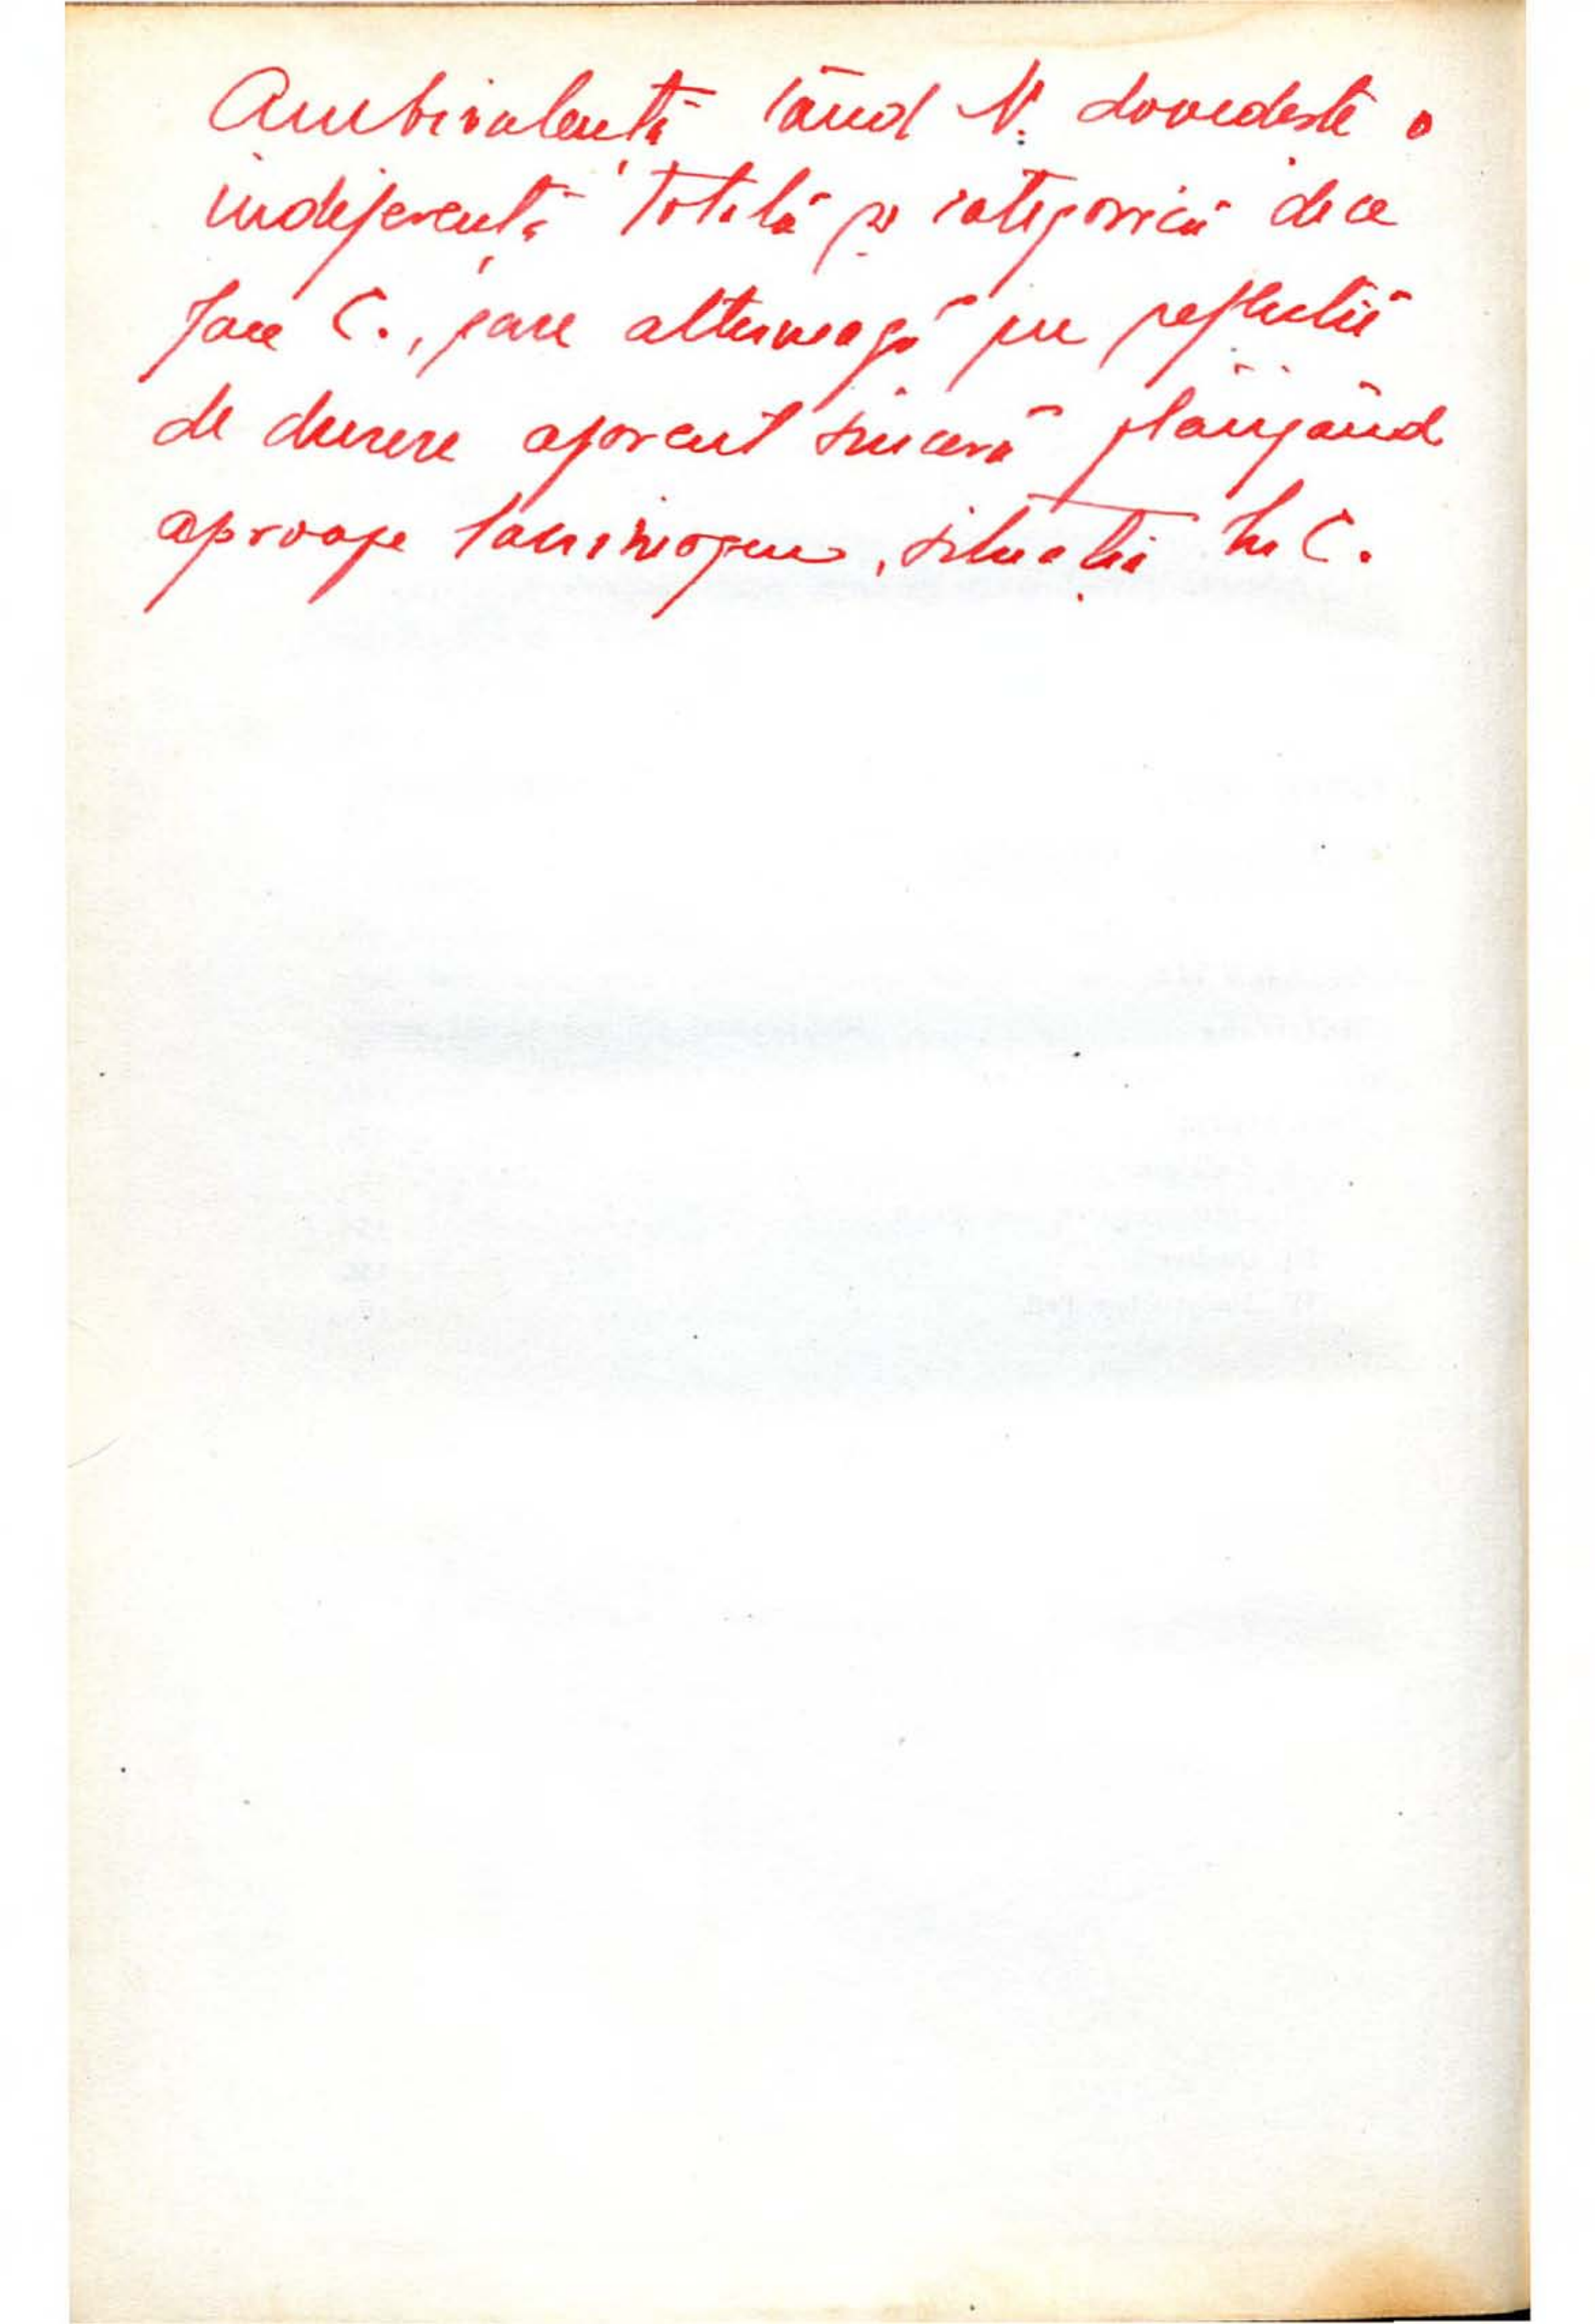 Ambivalență când N. dovedește o
indiferență totală și categorică de ce
face C., care alternează cu reflecții
de durere aparent sinceră plângând
aproape lacrimogen, situația lui C.